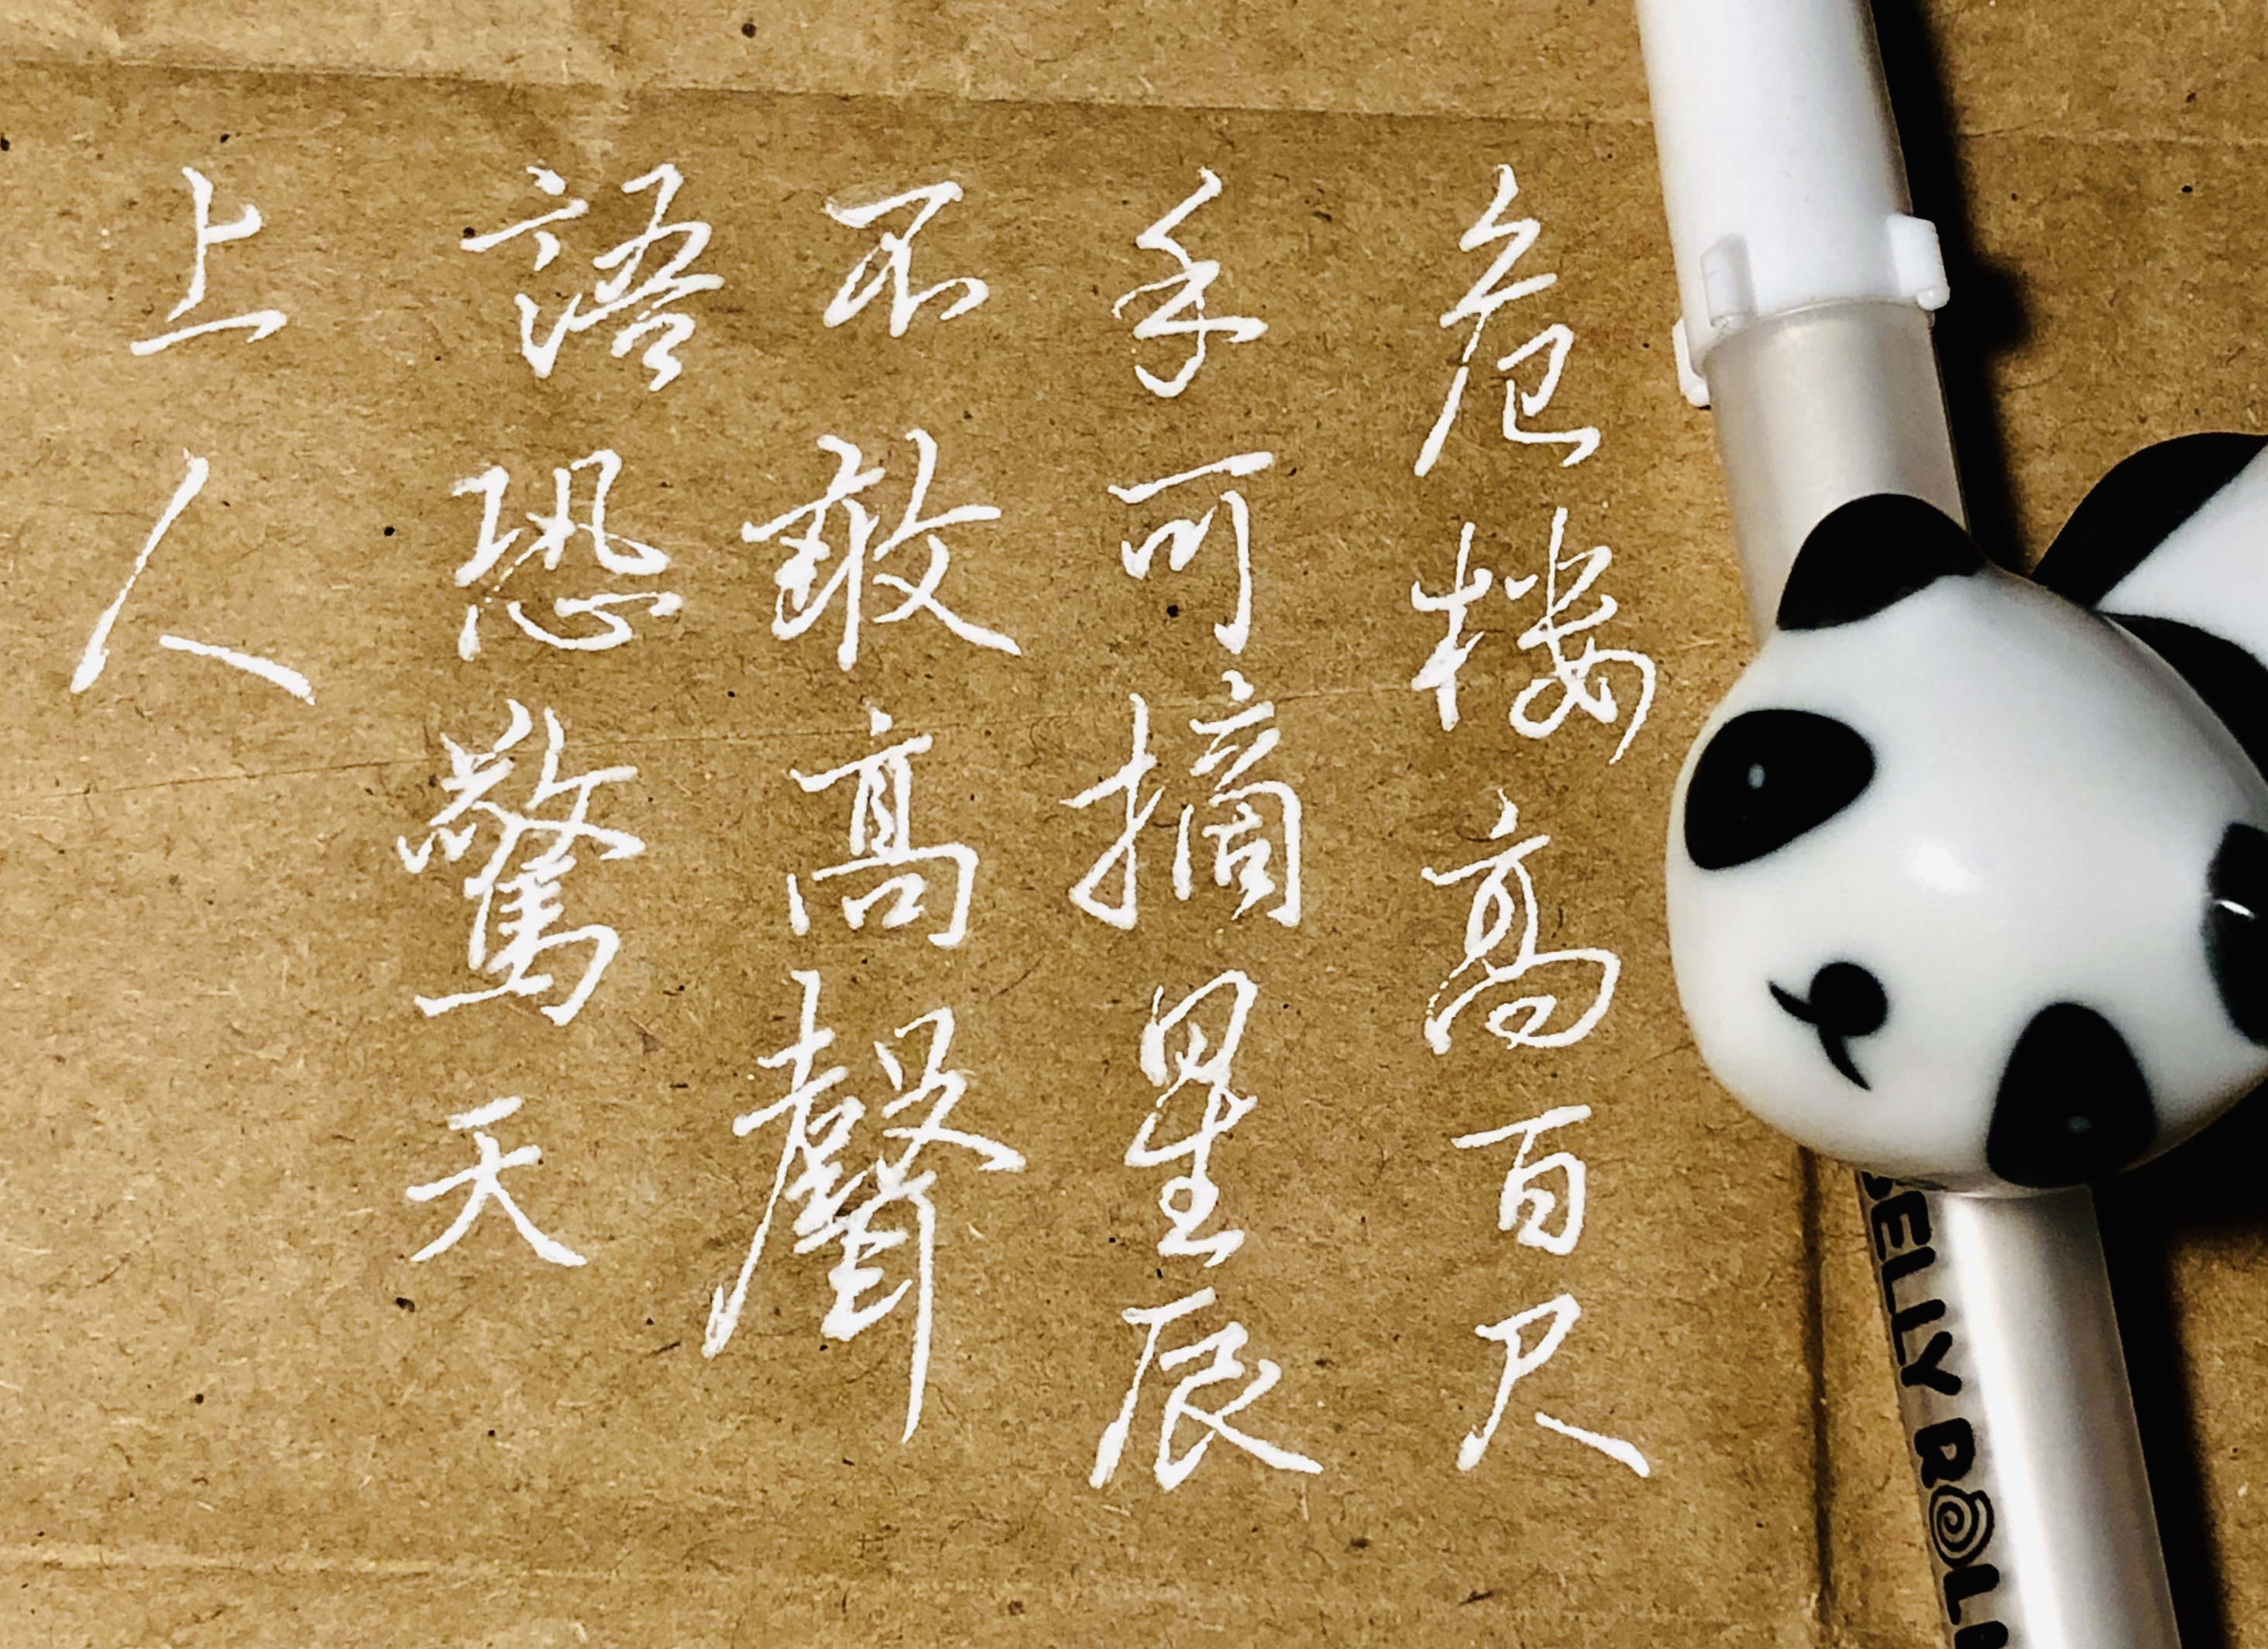 危楼高百尺
手可摘星辰
不敢高聲
語恐驚天
上人
BELLY ROLL